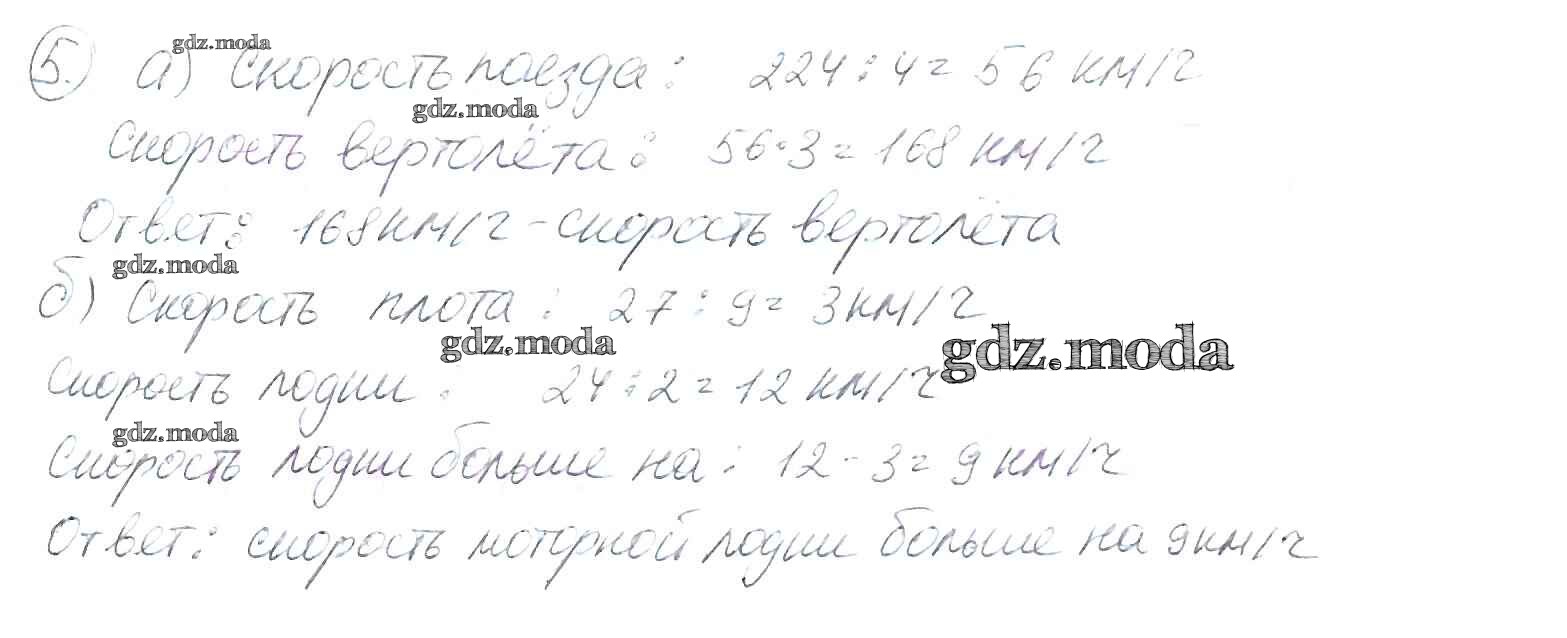 5. а) Скорость поезда: 224 : 4 = 56 км/ч
Скорость вертолёта: 56·3 = 168 км/ч
Ответ: 168 км/ч - скорость вертолёта
б) Скорость плота: 27 : 9 = 3 км/ч
Скорость лодки: 24 : 2 = 12 км/ч
Скорость лодки больше на: 12 - 3 = 9 км/ч
Ответ: скорость моторной лодки больше на 9 км/ч
gdz.moda
gdz.moda
gdz.moda
gdz.moda
gdz.moda
gdz.moda